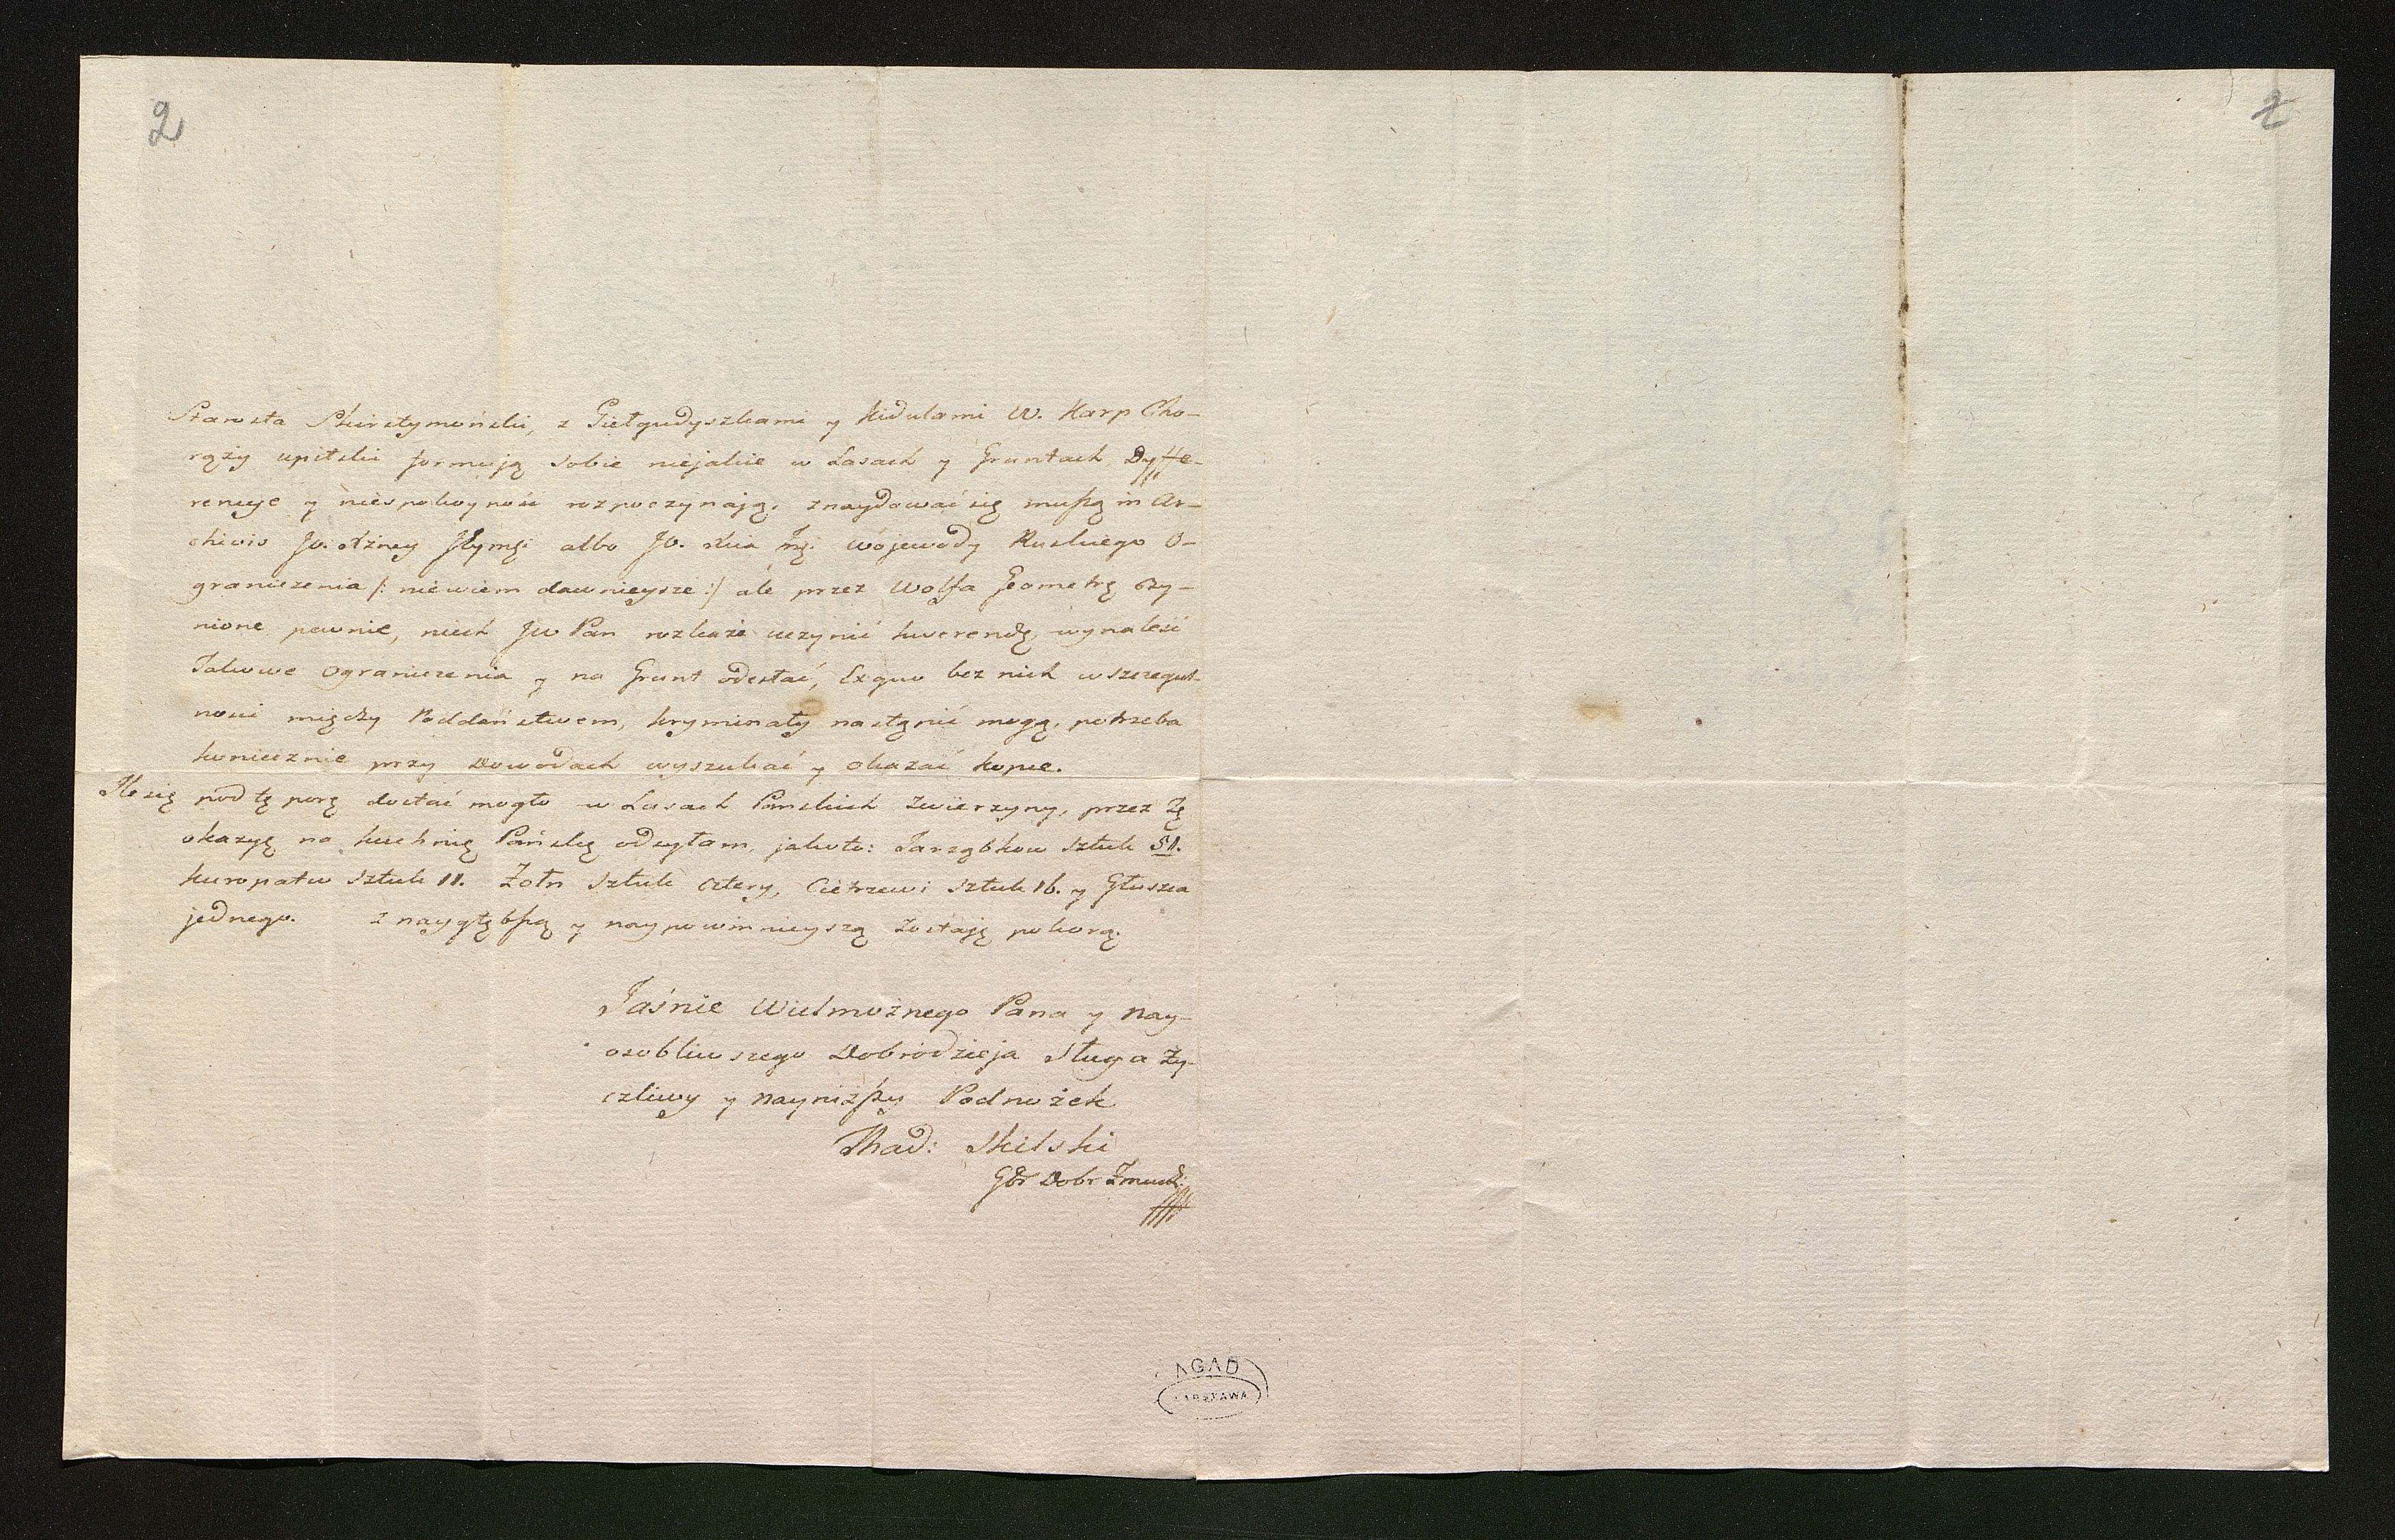 2
Starosta Skirstymoński, z Giełgudyszkami y Kidulami W. Karp Cho-
rąży upitski formują sobie niejakie w Lasach y Gruntach Dyffe-
rencye y niespokoyność rozpoczynają, znaydować się muszą in Ar-
chivis JO. Xżney Jłymći albo JO. Xcia Jmći wojewody Ruskiego O-
graniczenia /: niewiem dawnieysze :/ ale przez Wolfa Geometrę czy-
nione pewnie, niech JW Pan rozkaże uczynić kwerendę, wynaleść
Takowe Ograniczenia y na Grunt odesłać, Exquo bez nich w szczegul-
ności między Poddaństwem, kryminały nastąpić mogą, potrzeba
koniecznie przy Dowodach wyszukać y okazać kopce.
Ile się pod tę porę dostać mogło w Lasach Pańskich Zwierzyny, przez Tę
okazyę na kuchnię Pańską odsyłam, jakoto: Jarząbkow Sztuk 51.
kuropatw Sztuk 11. Żołn Sztuk cztery, Cietrzewi Sztuk 16. y Głuszca
jednego. z naygłębszą y naypowinnieyszą Zostaję pokorą.
Jaśnie Wielmożnego Pana y Nay-
osobliwszego Dobrodzieja Sługa Ży-
czliwy y Nayniższy Podnożek
Thad: Skilski
Gbr Dobr Żmudź:
AGAD
WARSZAWA